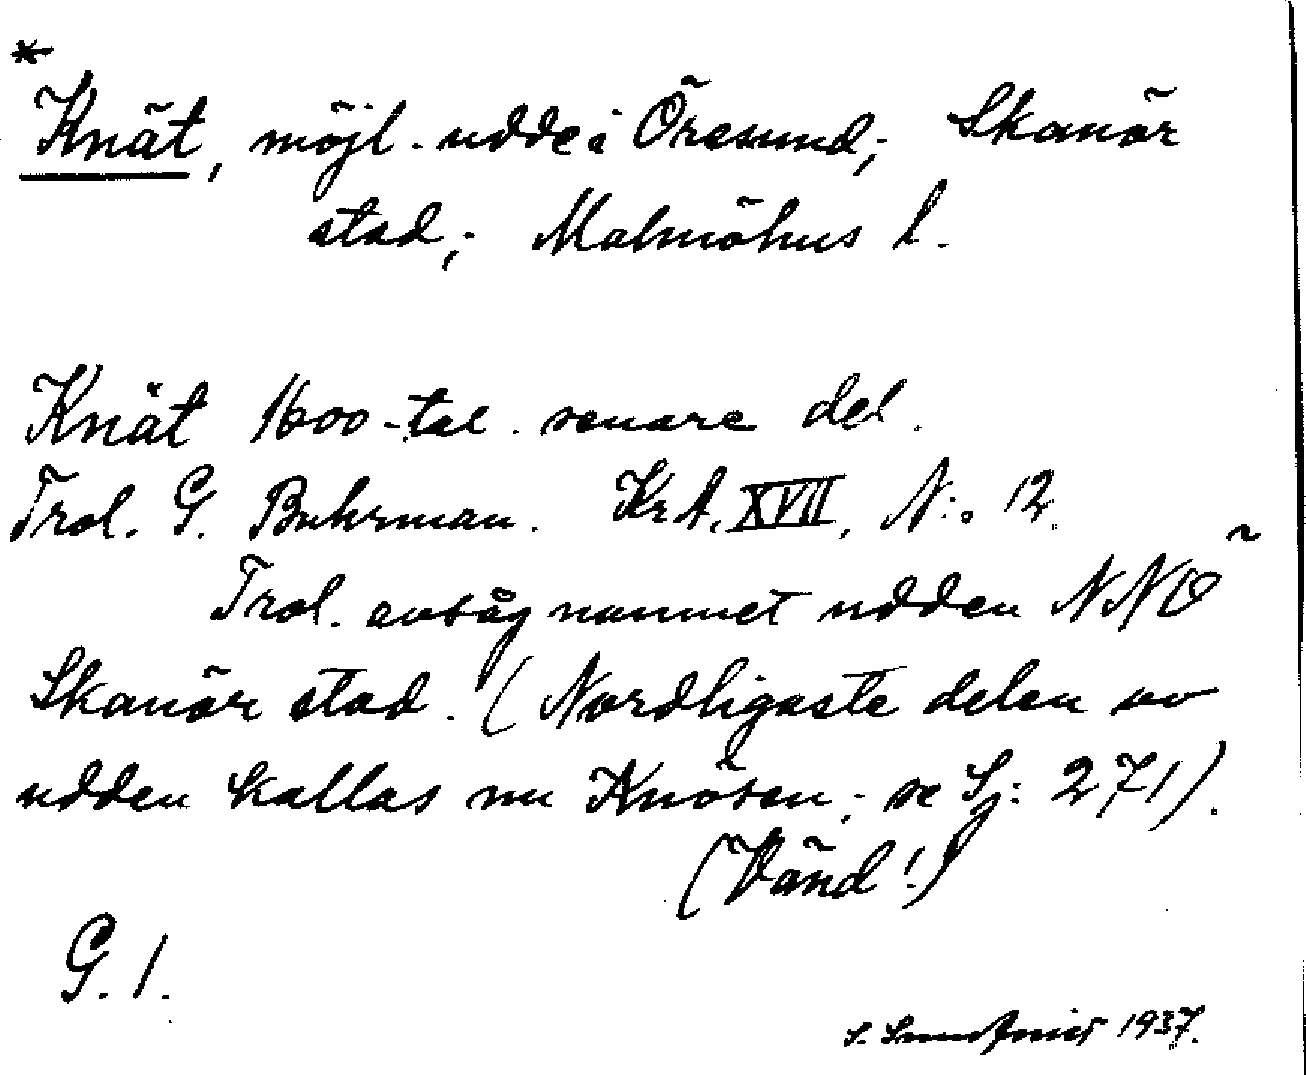 *
Knät, möjl. udde i Öresund; Skanör
stad; Malmöhus l.
Knät 1600-tal senare del.
Trol. G. Buhrman. KrA, XVII, N:o 12.
Trol. avsåg namnet udden NNO
Skanör stad. (Nordligaste delen av
udden kallas nu Knösen; se Sj: 271).
(Vänd!)
G. 1.
S. 1937.